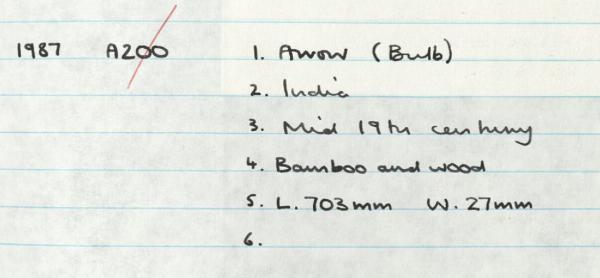 1987 A200 1. Arrow (Bulb)
2. India
3. Mid 19th century
4. Bamboo and wood
5. L. 703mm W. 27mm
6.